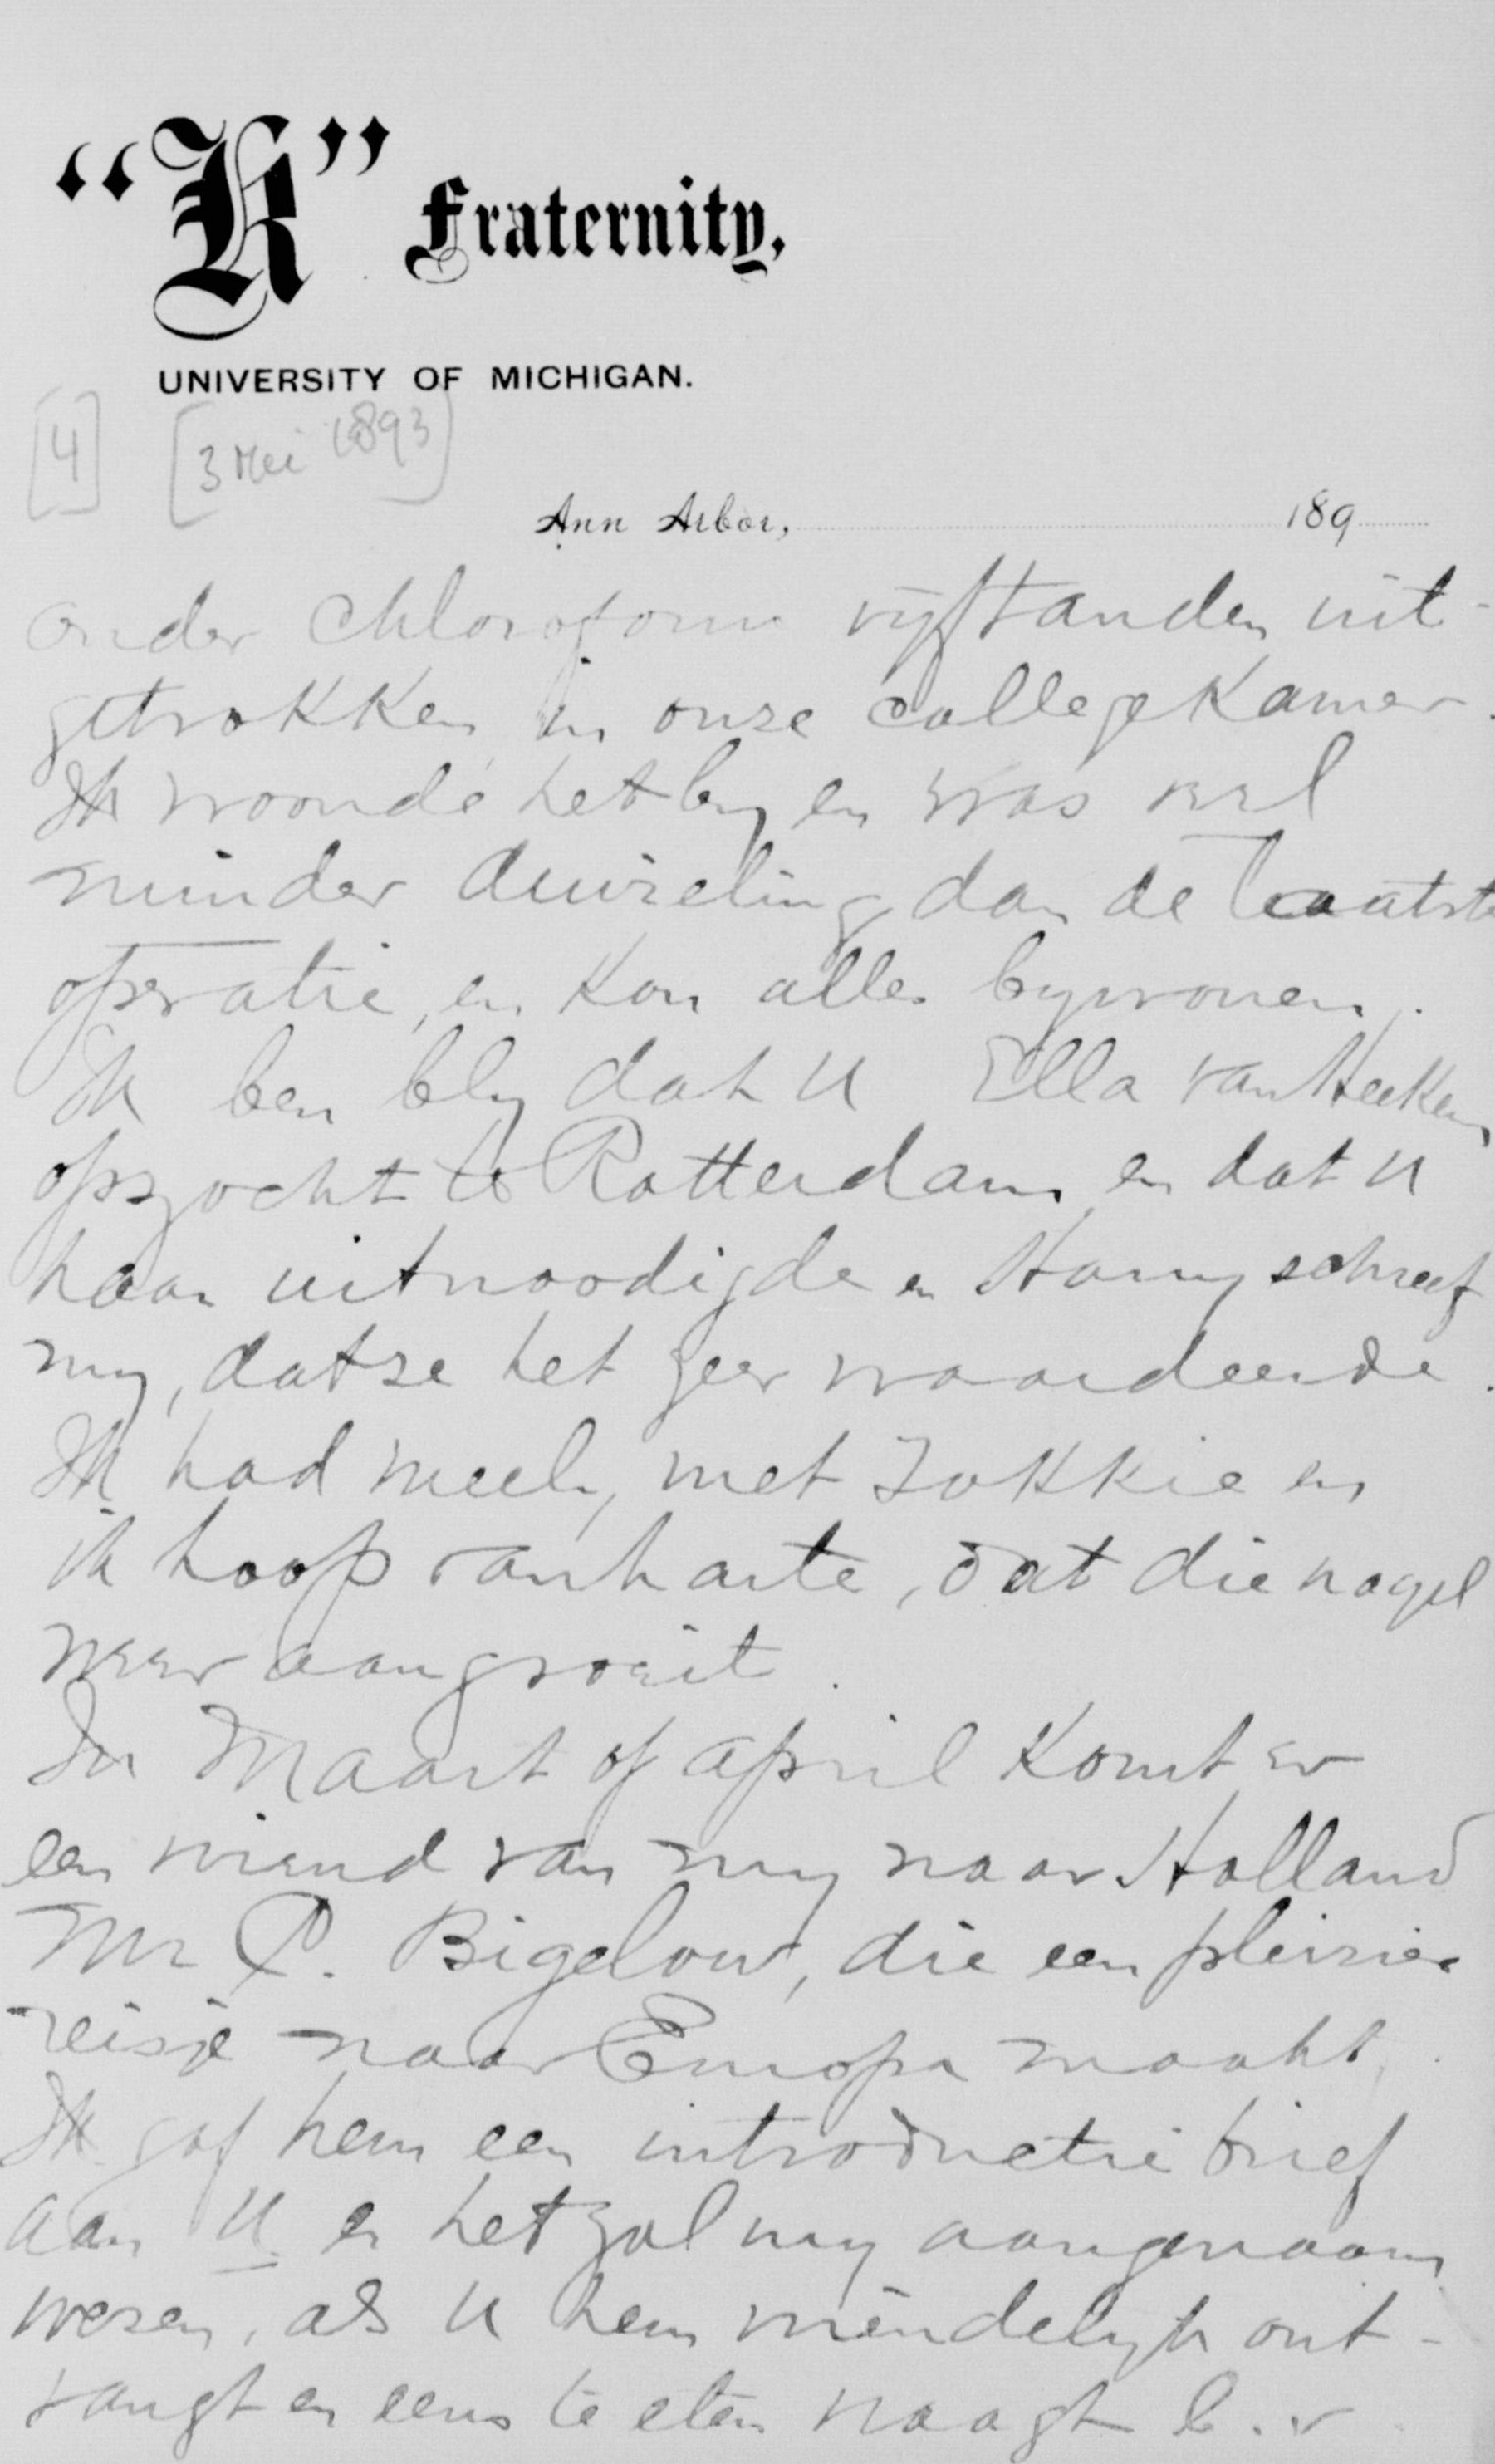 “K” Fraternity,
UNIVERSITY OF MICHIGAN.
[4] [3 Mei 1893]
Ann Arbor, 189
onder Chloroform vyf tanden uit-
getrokken in onze collegekamer.
Ik woonde het by en was veel
minder duizeling dan de laatste
operatie, en kon alles bywonen.
Ik ben bly dat U Ella van Heeken
opzocht te Rotterdam en dat U
haar uitnoodigde en Harry schreef
my, dat ze het zeer waardeerde.
Ik had meely met Zokkie en
ik hoop van harte, dat die nagel
weer aangroeit.
In Maart of April komt er
een vriend van my naar Holland
Mr P. Bigelow, die een pleizier
reisje naar Europa maakt.
Ik gaf hem een introductie brief
aan U en het zal my aangenaam
wezen, als U hem vriendelyk ont-
vangt en eens te eten vraagt b.v